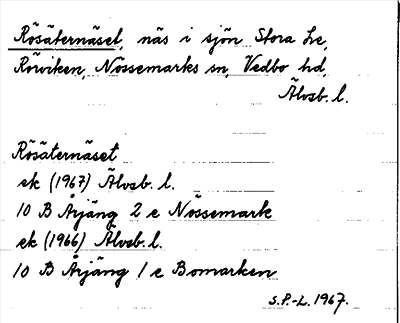 Rösäternäset, näs i sjön Stora Le,
Röviken, Nössemarks sn, Vedbo hd,
Älvsb. l.
Rösäternäset
ek (1967) Älvsb. l.
10 B Årjäng 2 e Nössemark
ek (1966) Älvsb. l.
10 B Årjäng 1 e Bomarken
S.P.-L. 1967.